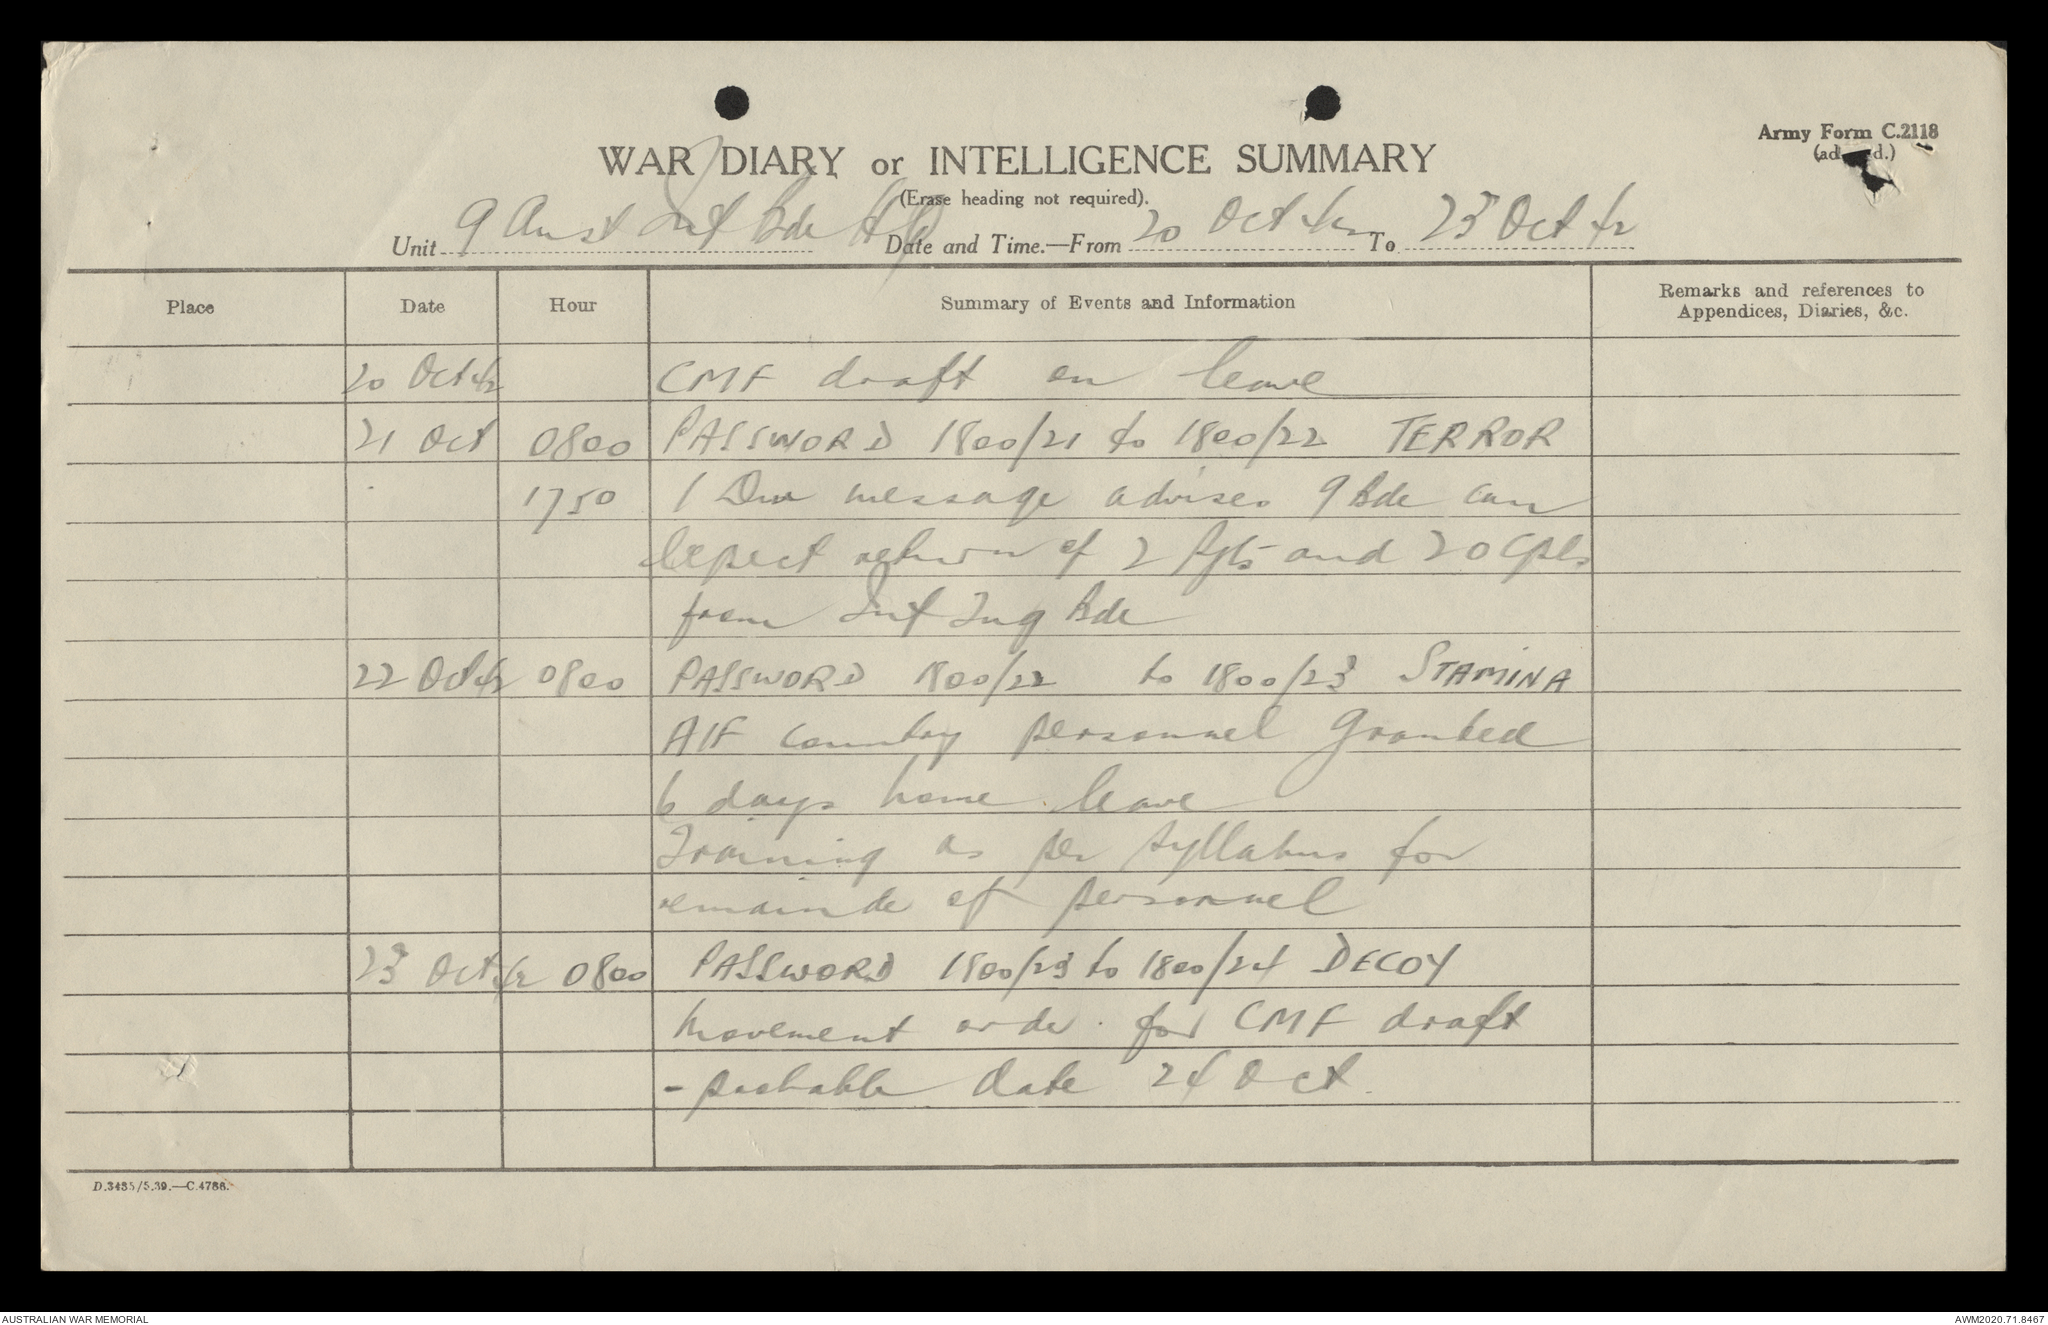 Army Form C.2118
WAR DIARY or INTELLIGENCE SUMMARY
(Erase heading not required).
Unit 9 Aust Inf Bde HQ Date and Time.—From 20 Oct 42 To 23 Oct 42
Place Date Hour Summary of Events and Information Remarks and references to
Appendices, Diaries, &c.
20 Oct 42 CMF draft on leave
21 Oct 0800 PASSWORD 1800/21 to 1800/22 TERROR
1750 1 Div message advises 9 Bde can
expect return of 2 Sgts and 20 Cpls
from Inf Tng Bde
22 Oct 42 0800 PASSWORD 1800/22 to 1800/23 STAMINA
AIF country personnel granted
6 days home leave
Training as per syllabus for
remainde of personnel
23 Oct 42 0800 PASSWORD 1800/23 to 1800/24 DECOY
Movement order for CMF draft
- probable date 24 Oct.
D.3435/5.39.—C.4786.
AUSTRALIAN WAR MEMORIAL AWM2020.71.8467